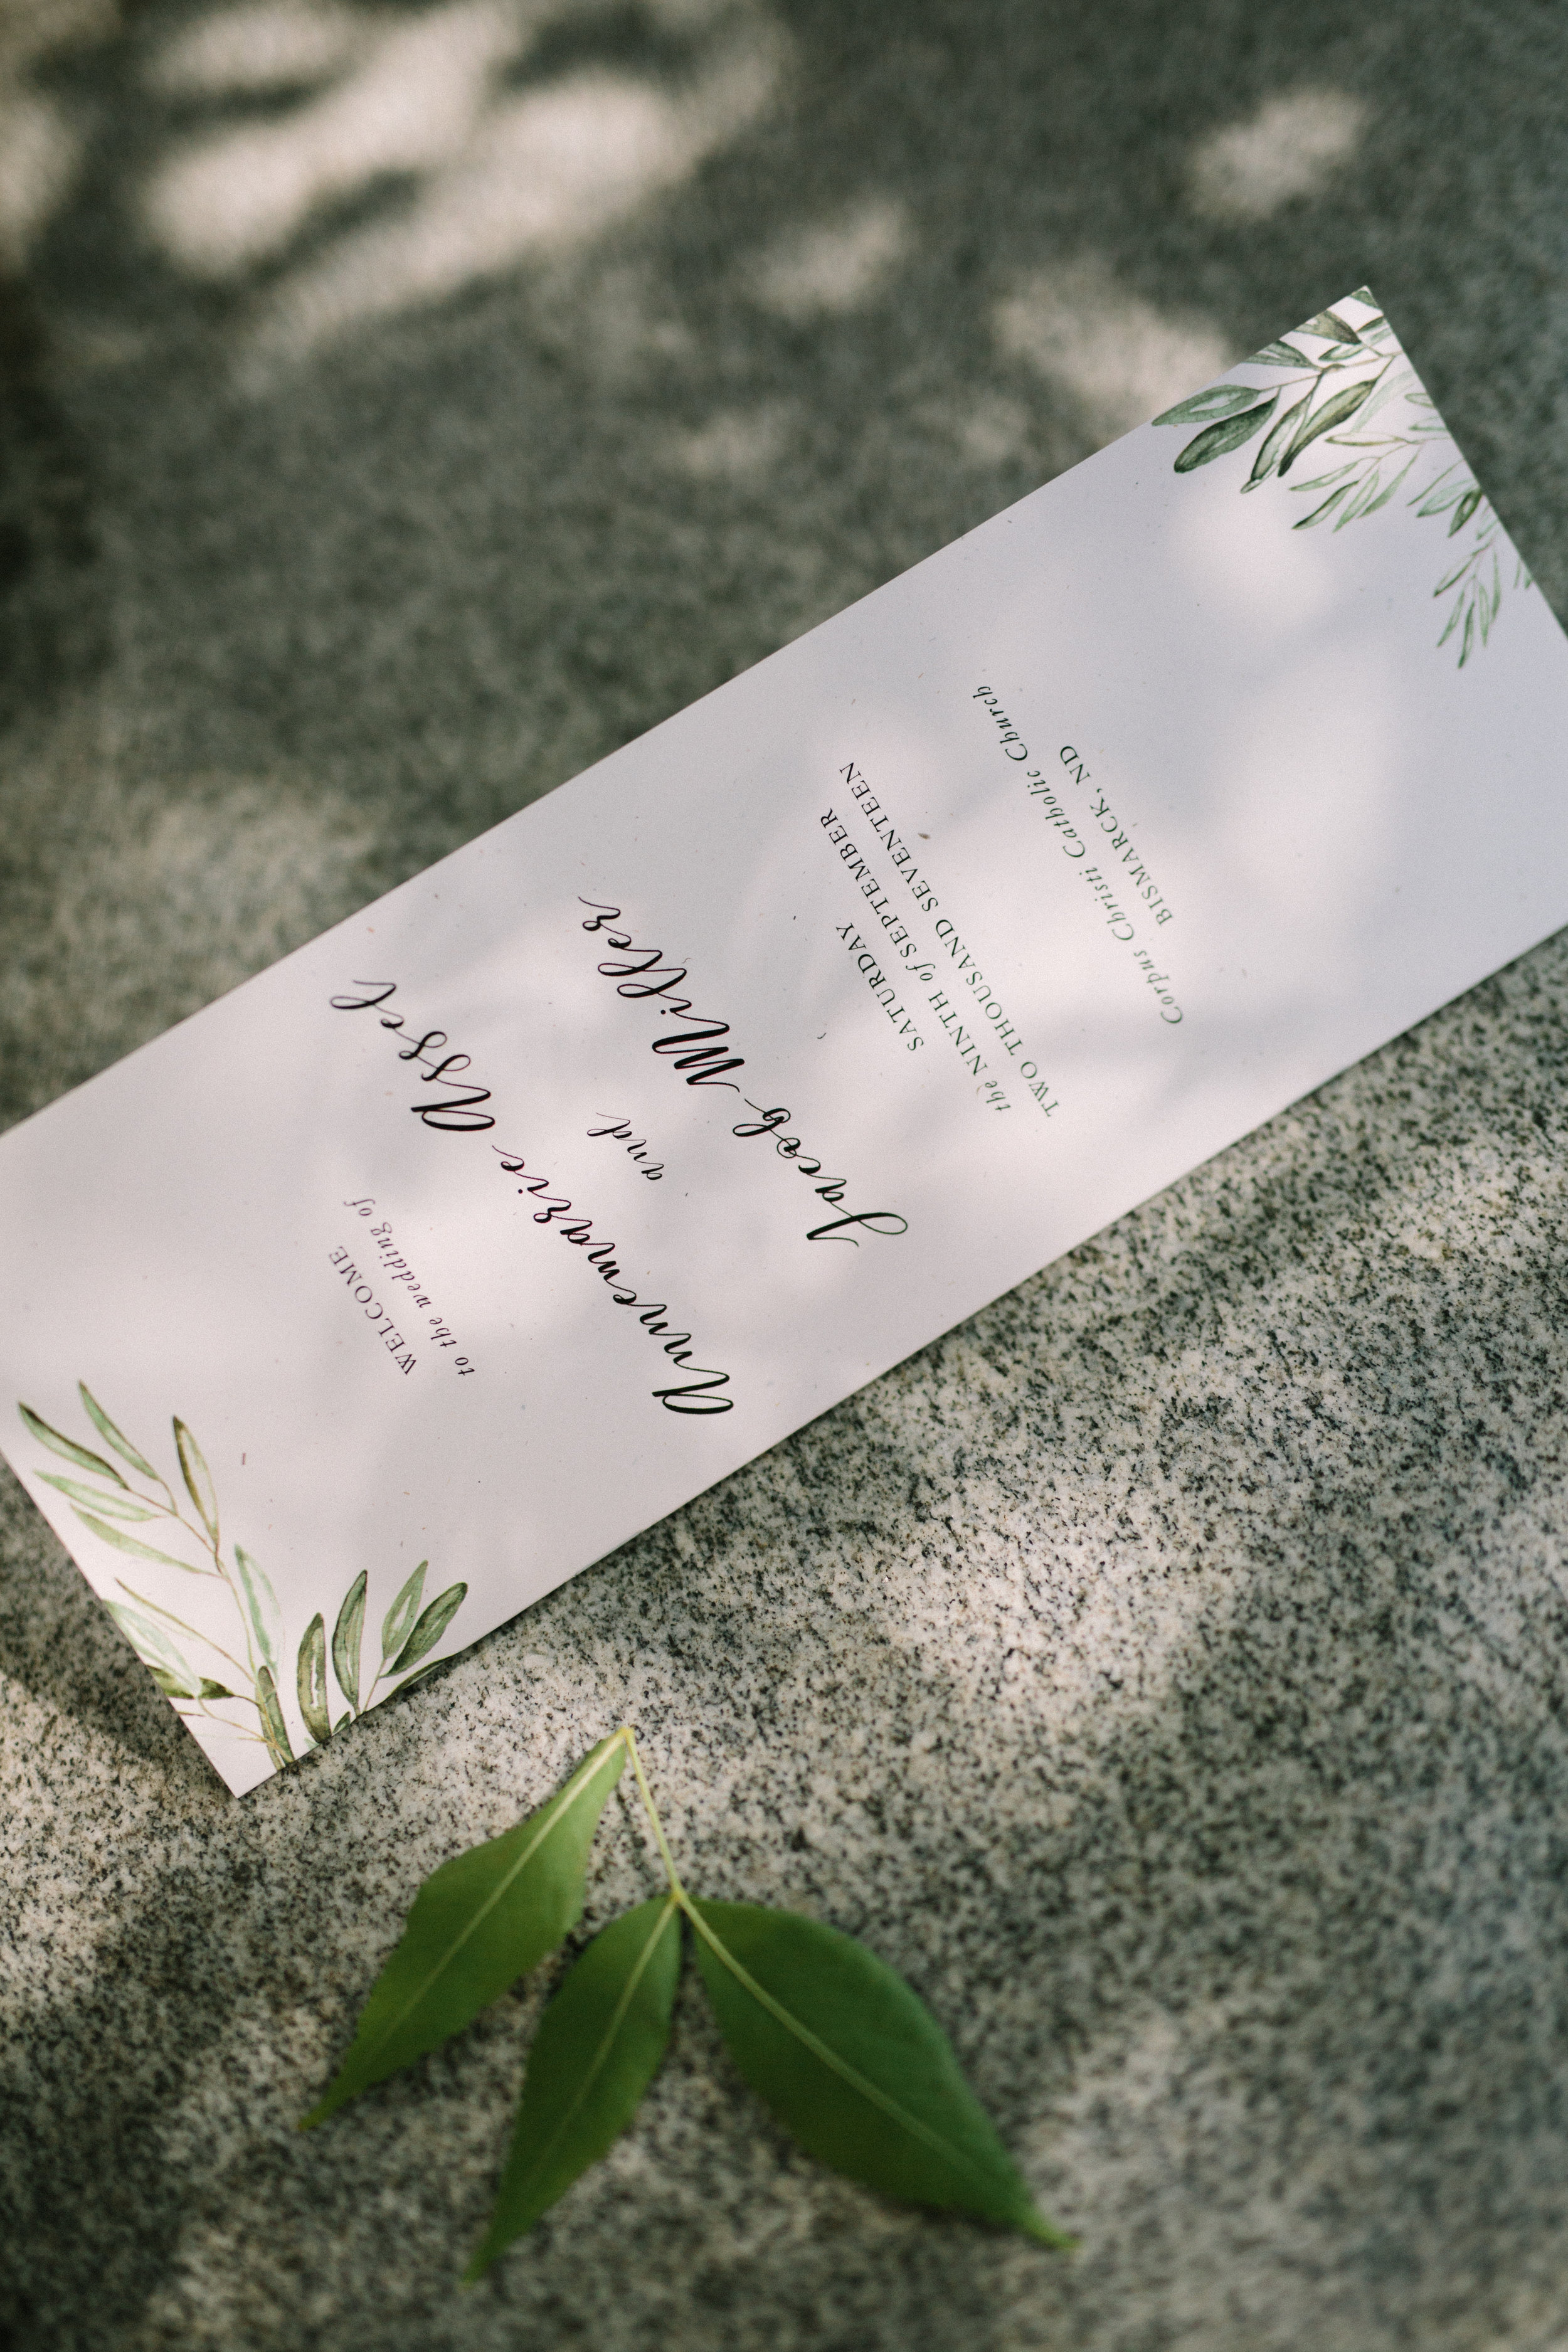 WELCOME
to the wedding of
Annemarie Assel
and
Jacob Miller
SATURDAY
the NINTH of SEPTEMBER
TWO THOUSAND SEVENTEEN
Corpus Christi Catholic Church
BISMARCK, ND